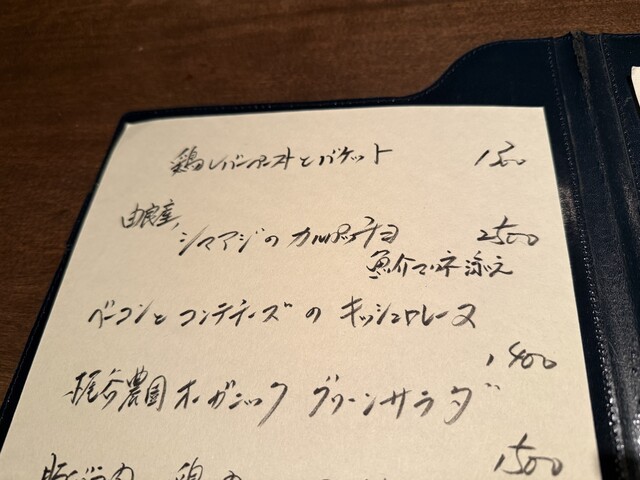 鶏レバーペーストとバケット 1200
由良産、
シマアジのカルパッチョ 2500
魚介マリネ添え
ベーコンとコンテチーズのキッシュロレーヌ
1400
梶谷農園オーガニック グリーンサラダ
1500
鶏